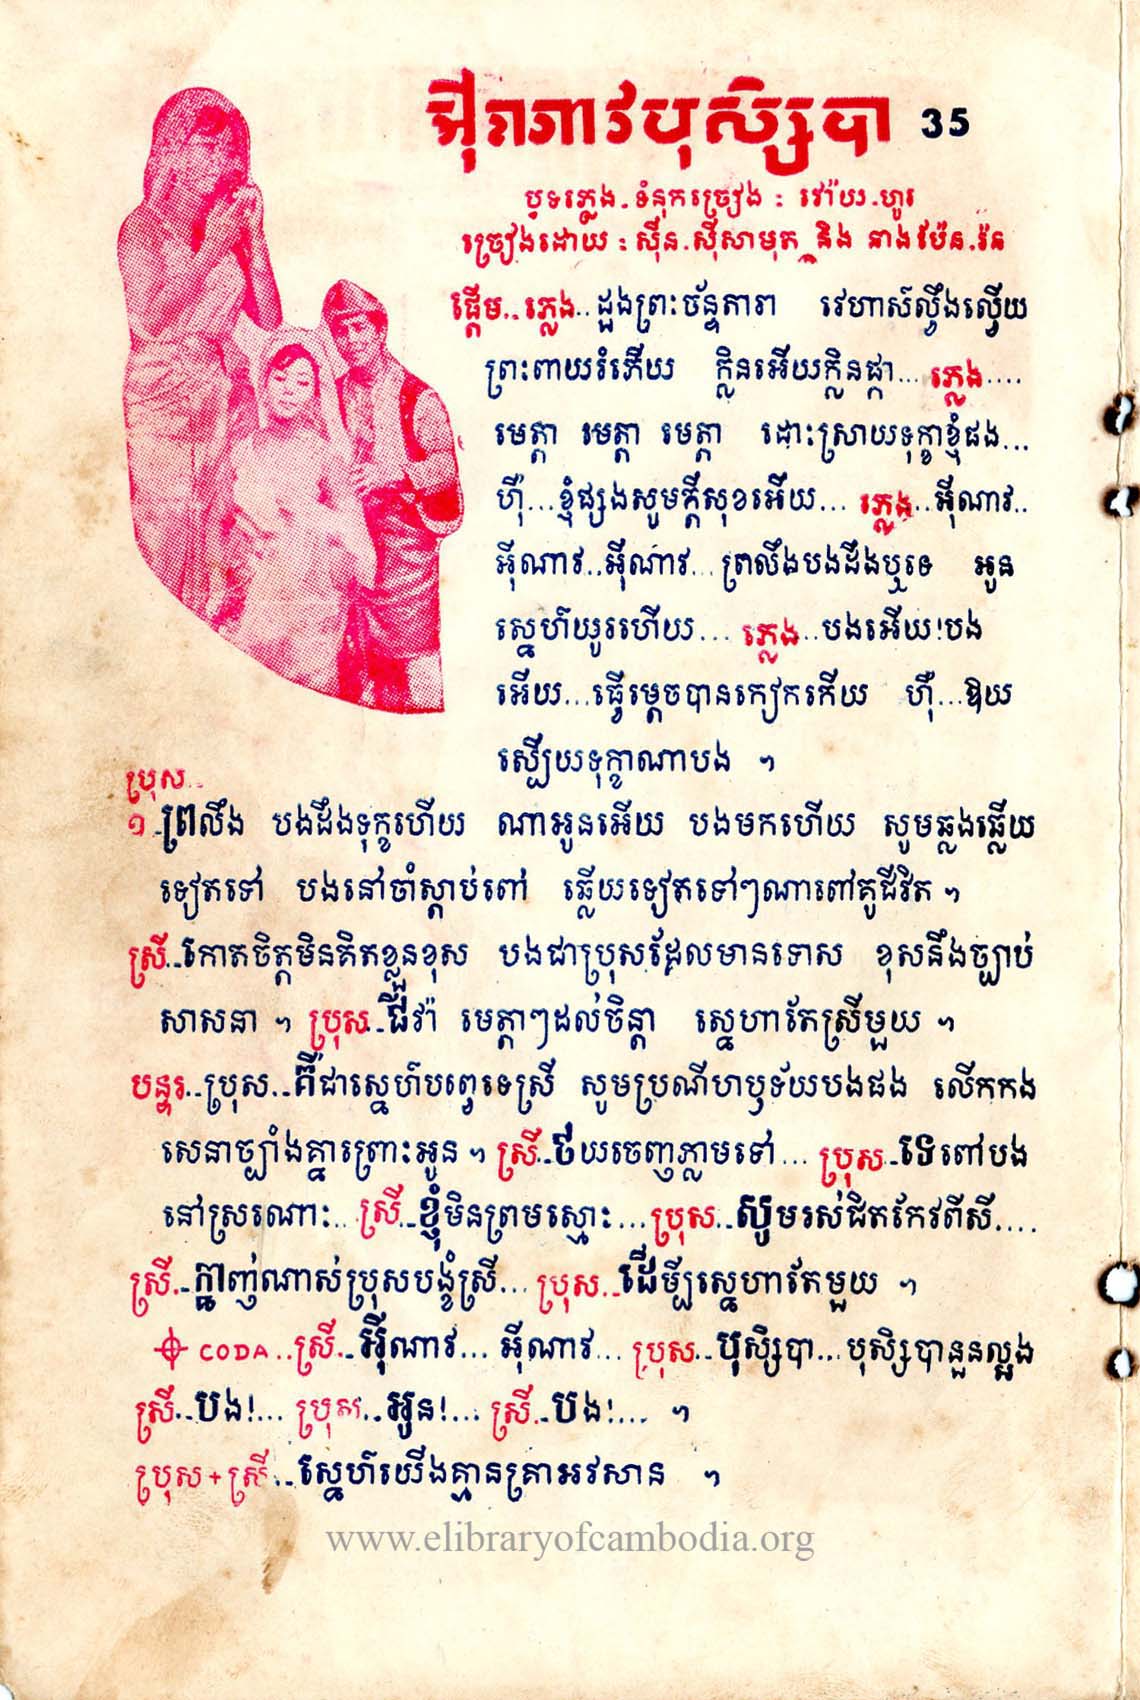 អ៊ីណាវបុស្សិបា 35
បទភ្លេង.ទំនុកច្រៀង : វ៉ោយ.ហូរ
ច្រៀងដោយ : ស៊ីន.ស៊ីសាមុត និង នាងប៉ែន.រ៉ន
ផ្តើម..ភ្លេង..ដួងព្រះច័ន្ទតារា វេហាស៍ល្វឹងល្វើយ
ព្រះពាយរំភើយ ក្លិនអើយក្លិនផ្កា...ភ្លេង....
មេត្តា មេត្តា មេត្តា ដោះស្រាយទុក្ខាខ្ញុំផង...
ហ៊ឺ...ខ្ញុំផ្សងសូមក្តីសុខអើយ...ភ្លេង..អ៊ីណាវ..
អ៊ីណាវ..អ៊ីណាវ...ព្រលឹងបងដឹងឬទេ អូន
ស្នេហ៍យូរហើយ...ភ្លេង..បងអើយ!បង
អើយ...ធ្វើម្តេចបានកៀកកើយ ហ៊ឺ...ឱយ
ស្បើយទុក្ខាណាបង ។
ប្រុស..
១.ព្រលឹង បងដឹងទុក្ខហើយ ណាអូនអើយ បងមកហើយ សូមឆ្លងឆ្លើយ
ទៀតទៅ បងនៅចាំស្តាប់ពៅ ឆ្លើយទៀតទៅៗណាពៅគូជីវិត ។
ស្រី..កោតចិត្តមិនគិតខ្លួនខុស បងជាប្រុសដែលមានទោស ខុសនឹងច្បាប់
សាសនា ។ ប្រុស..ជីវ៉ា មេត្តាៗដល់ចិន្តា ស្នេហាតែស្រីមួយ ។
បន្ទរ..ប្រុស..គឺជាស្នេហ៍បព្វេទេស្រី សូមប្រណីហឫទ័យបងផង លើកកង
សេនាច្បាំងគ្នាព្រោះអូន ។ ស្រី..ថយចេញភ្លាមទៅ... ប្រុស..ទេពៅបង
នៅស្រណោះ...ស្រី..ខ្ញុំមិនព្រមស្មោះ...ប្រុស..សូមរស់ជិតកែវពីសី....
ស្រី..ភ្នាញ់ណាស់ប្រុសបង្ខំស្រី...ប្រុស..ដើម្បីស្នេហាតែមួយ ។
CODA..ស្រី..អ៊ីណាវ... អ៊ីណាវ... ប្រុស..បុស្សិបា...បុស្សិបានួនល្អង
ស្រី..បង!... ប្រុស..អូន!... ស្រី..បង!... ។
ប្រុស+ស្រី..ស្នេហ៍យើងគ្មានគ្រាអវសាន ។
www.elibraryofcambodia.org